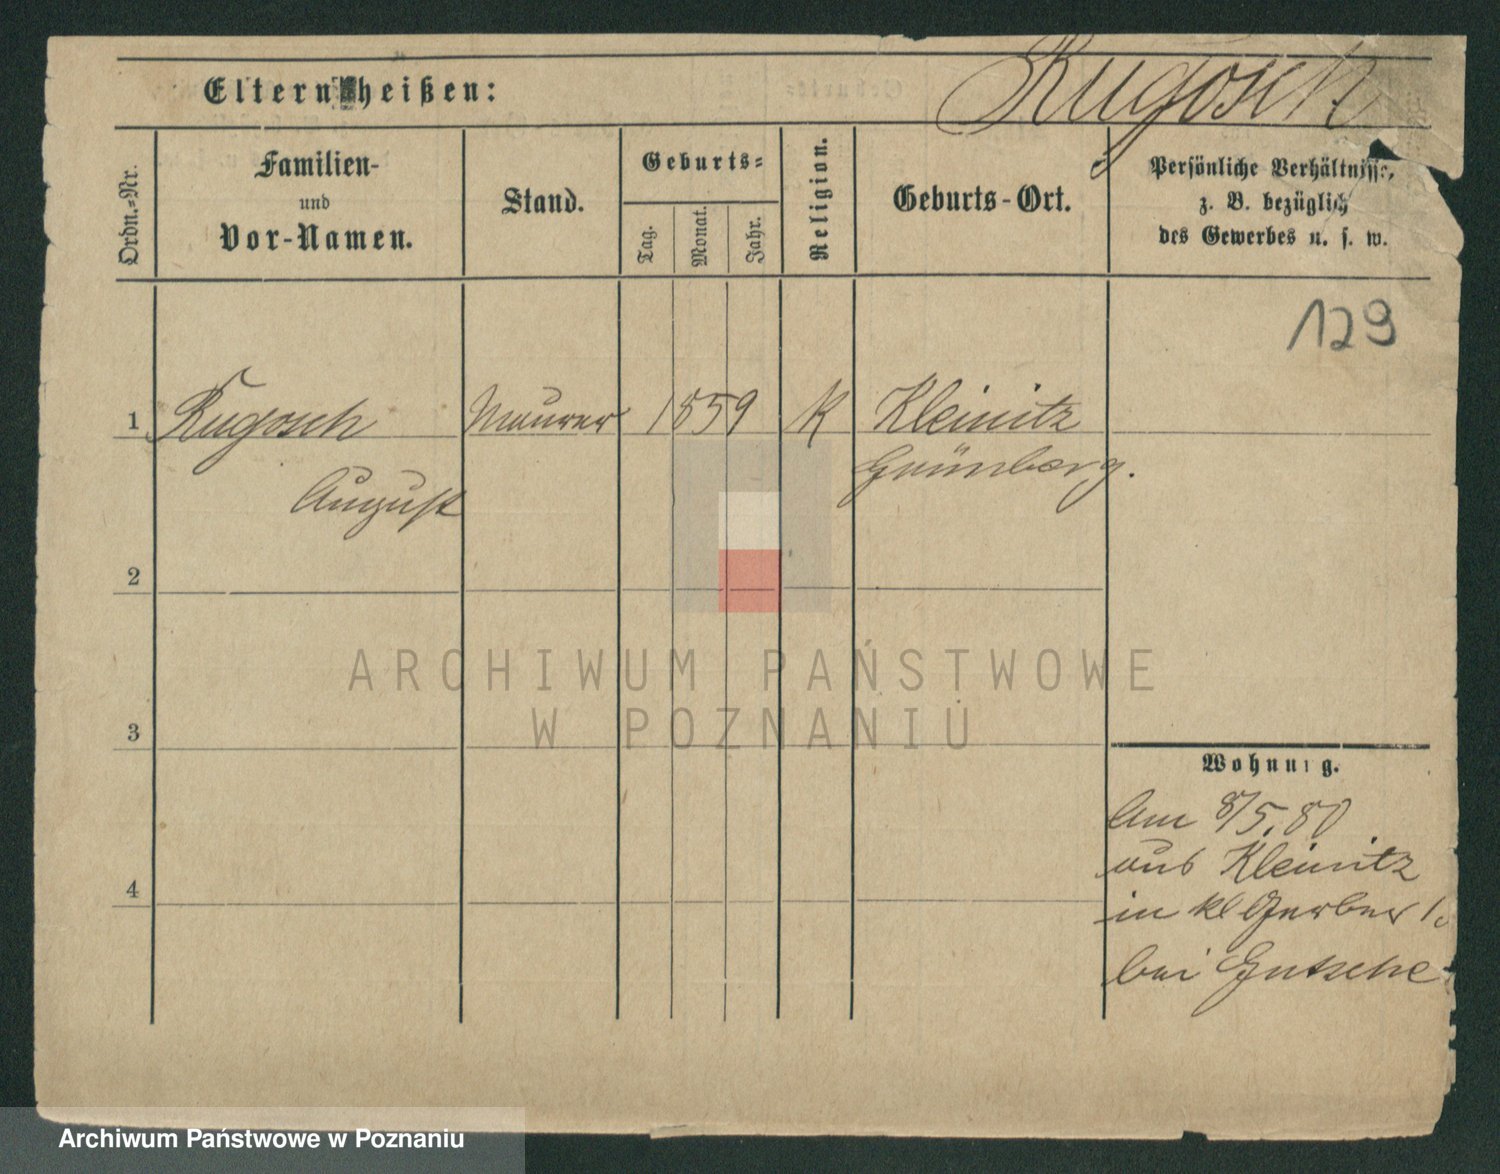 Eltern heißen:
Rugosch
Ordn.-Nr.
Familien-
und
Vor-Namen.
Stand.
Geburts-
Tag.
Monat.
Jahr.
Religion.
Geburts-Ort.
Persönliche Verhältnisse,
z. B. bezüglich
des Gewerbes u. s. w.
129
1 Rugosch Maurer 1859 K Kleinitz
Grünberg.
August
2
ARCHIWUM PAŃSTWOWE
W POZNANIU
3
Wohnung.
Am 8/5.80
aus Kleinitz
4
in kl Gerber
bei Gutsche
Archiwum Państwowe w Poznaniu